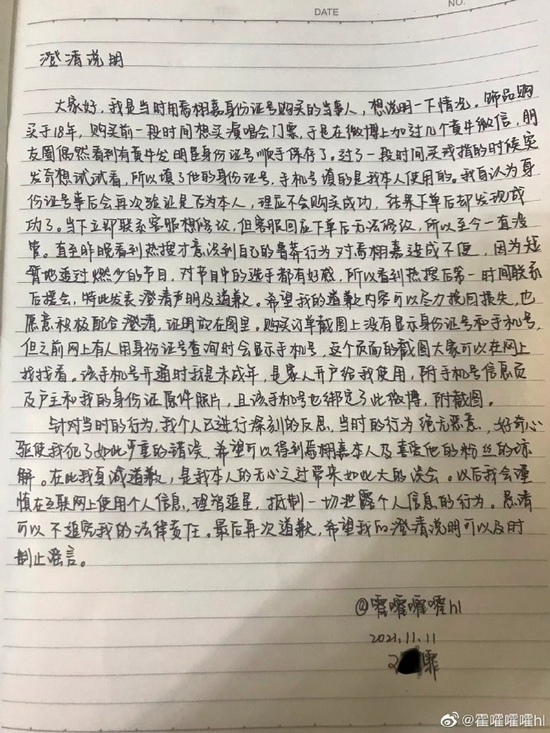 DATE
NO.
澄清说明
大家好，我是当时用焉栩嘉身份证号购买的当事人，想说明一下情况。饰品购
买于18年，购买前一段时间想买演唱会门票，于是在微博上加过几个黄牛微信，朋
友圈偶然看到有黄牛发明星身份证号顺手保存了。过了一段时间买戒指的时候突
发奇想试试看，所以填了他的身份证号，手机号填的是我本人使用的。我自认为身
份证号事后会再次验证是否为本人，理应不会购买成功，结果下单后却发现成
功了。当下立即联系客服想修改，但客服回应下单后无法修改，所以至今一直没
管。直至昨晚看到热搜才意识到自己的愚莽行为对焉栩嘉造成不便，因为短
暂地追过燃少的节目，对节目中的选手都有好感，所以看到热搜后第一时间联系
后援会，特此发表澄清声明及道歉。希望我的道歉内容可以尽力挽回损失，也
愿意积极配合澄清，证明放在图里，购买订单截图上没有显示身份证号和手机号，
但之前网上有人用身份证号查询时会显示手机号，这个页面的截图大家可以在网上
找找看。该手机号开通时我是未成年，是家人开户给我使用，附手机号信息页
及户主和我的身份证原件照片，且该手机号也绑定了此微博，附截图。
针对当时的行为，我个人已进行深刻的反思，当时的行为绝无恶意，好奇心
驱使我犯了如此严重的错误，希望可以得到焉栩嘉本人及喜爱他的粉丝的谅
解。在此我真诚道歉，是我本人的无心之过带来如此大的误会。以后我会谨
慎在互联网上使用个人信息，理智追星，抵制一切泄露个人信息的行为。恳请
可以不追究我的法律责任。最后再次道歉，希望我的澄清说明可以及时
制止谣言。
@霍嚯嚯嚯hl
2021.11.11
霏
@霍嚯嚯嚯hl